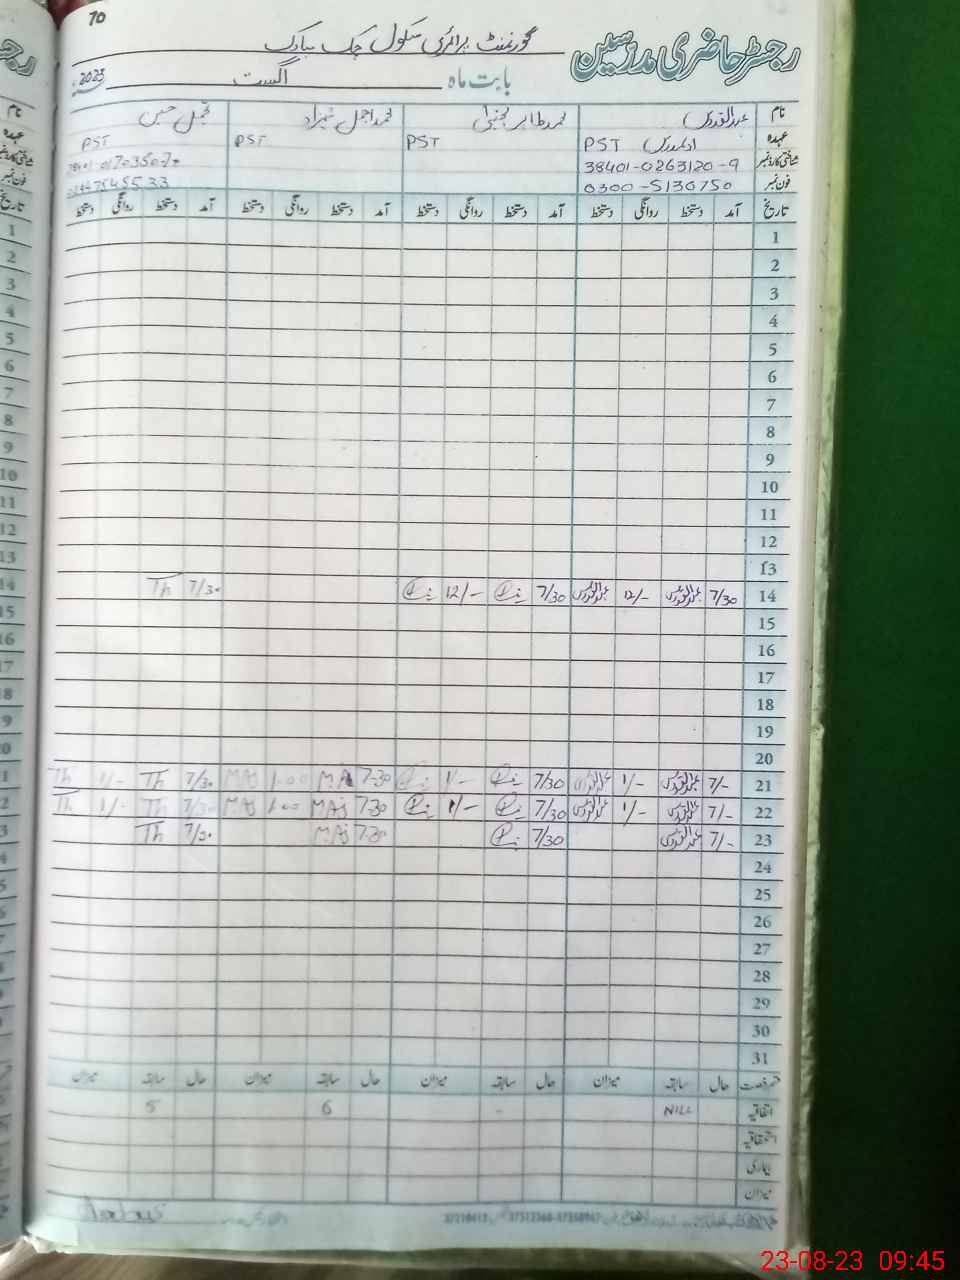 70
رجسٹر حاضری مدرسین
گورنمنٹ پرائمری سکول چک مبارک
بابت ماہ اگست 2023
نام عبدالقدوس محمد طاہر مجتبیٰ محمد اجمل شہزاد تجمل حسین
عہدہ PST PST PST PST
شناختی کارڈ نمبر 38401-0263120-9
فون نمبر 0300-5130750
تاریخ آمد دستخط روانگی دستخط آمد دستخط روانگی دستخط آمد دستخط روانگی دستخط آمد دستخط روانگی دستخط
1
2
3
4
5
6
7
8
9
10
11
12
13
14 7/30 عبدالقدوس 12/- عبدالقدوس 7/30 12/- 7/30 Th
15
16
17
18
19
20
21 7/- عبدالقدوس 1/- عبدالقدوس 7/30 1/- 7-30 M.A 1-00 MAj 7/30 Th 1/- Th
22 7/- عبدالقدوس 1/- عبدالقدوس 7/30 1/- 7-30 MAj 1-00 MAj 7/30 Th 1/- Th
23 7/- عبدالقدوس 7/30 7-30 MAj 7/30 Th
24
25
26
27
28
29
30
31
قسم رخصت حال سابقہ میزان حال سابقہ میزان حال سابقہ میزان حال سابقہ میزان
اتفاقیہ NILL - 6 5
استحقاقیہ
بیماری
میزان
23-08-23 09:45